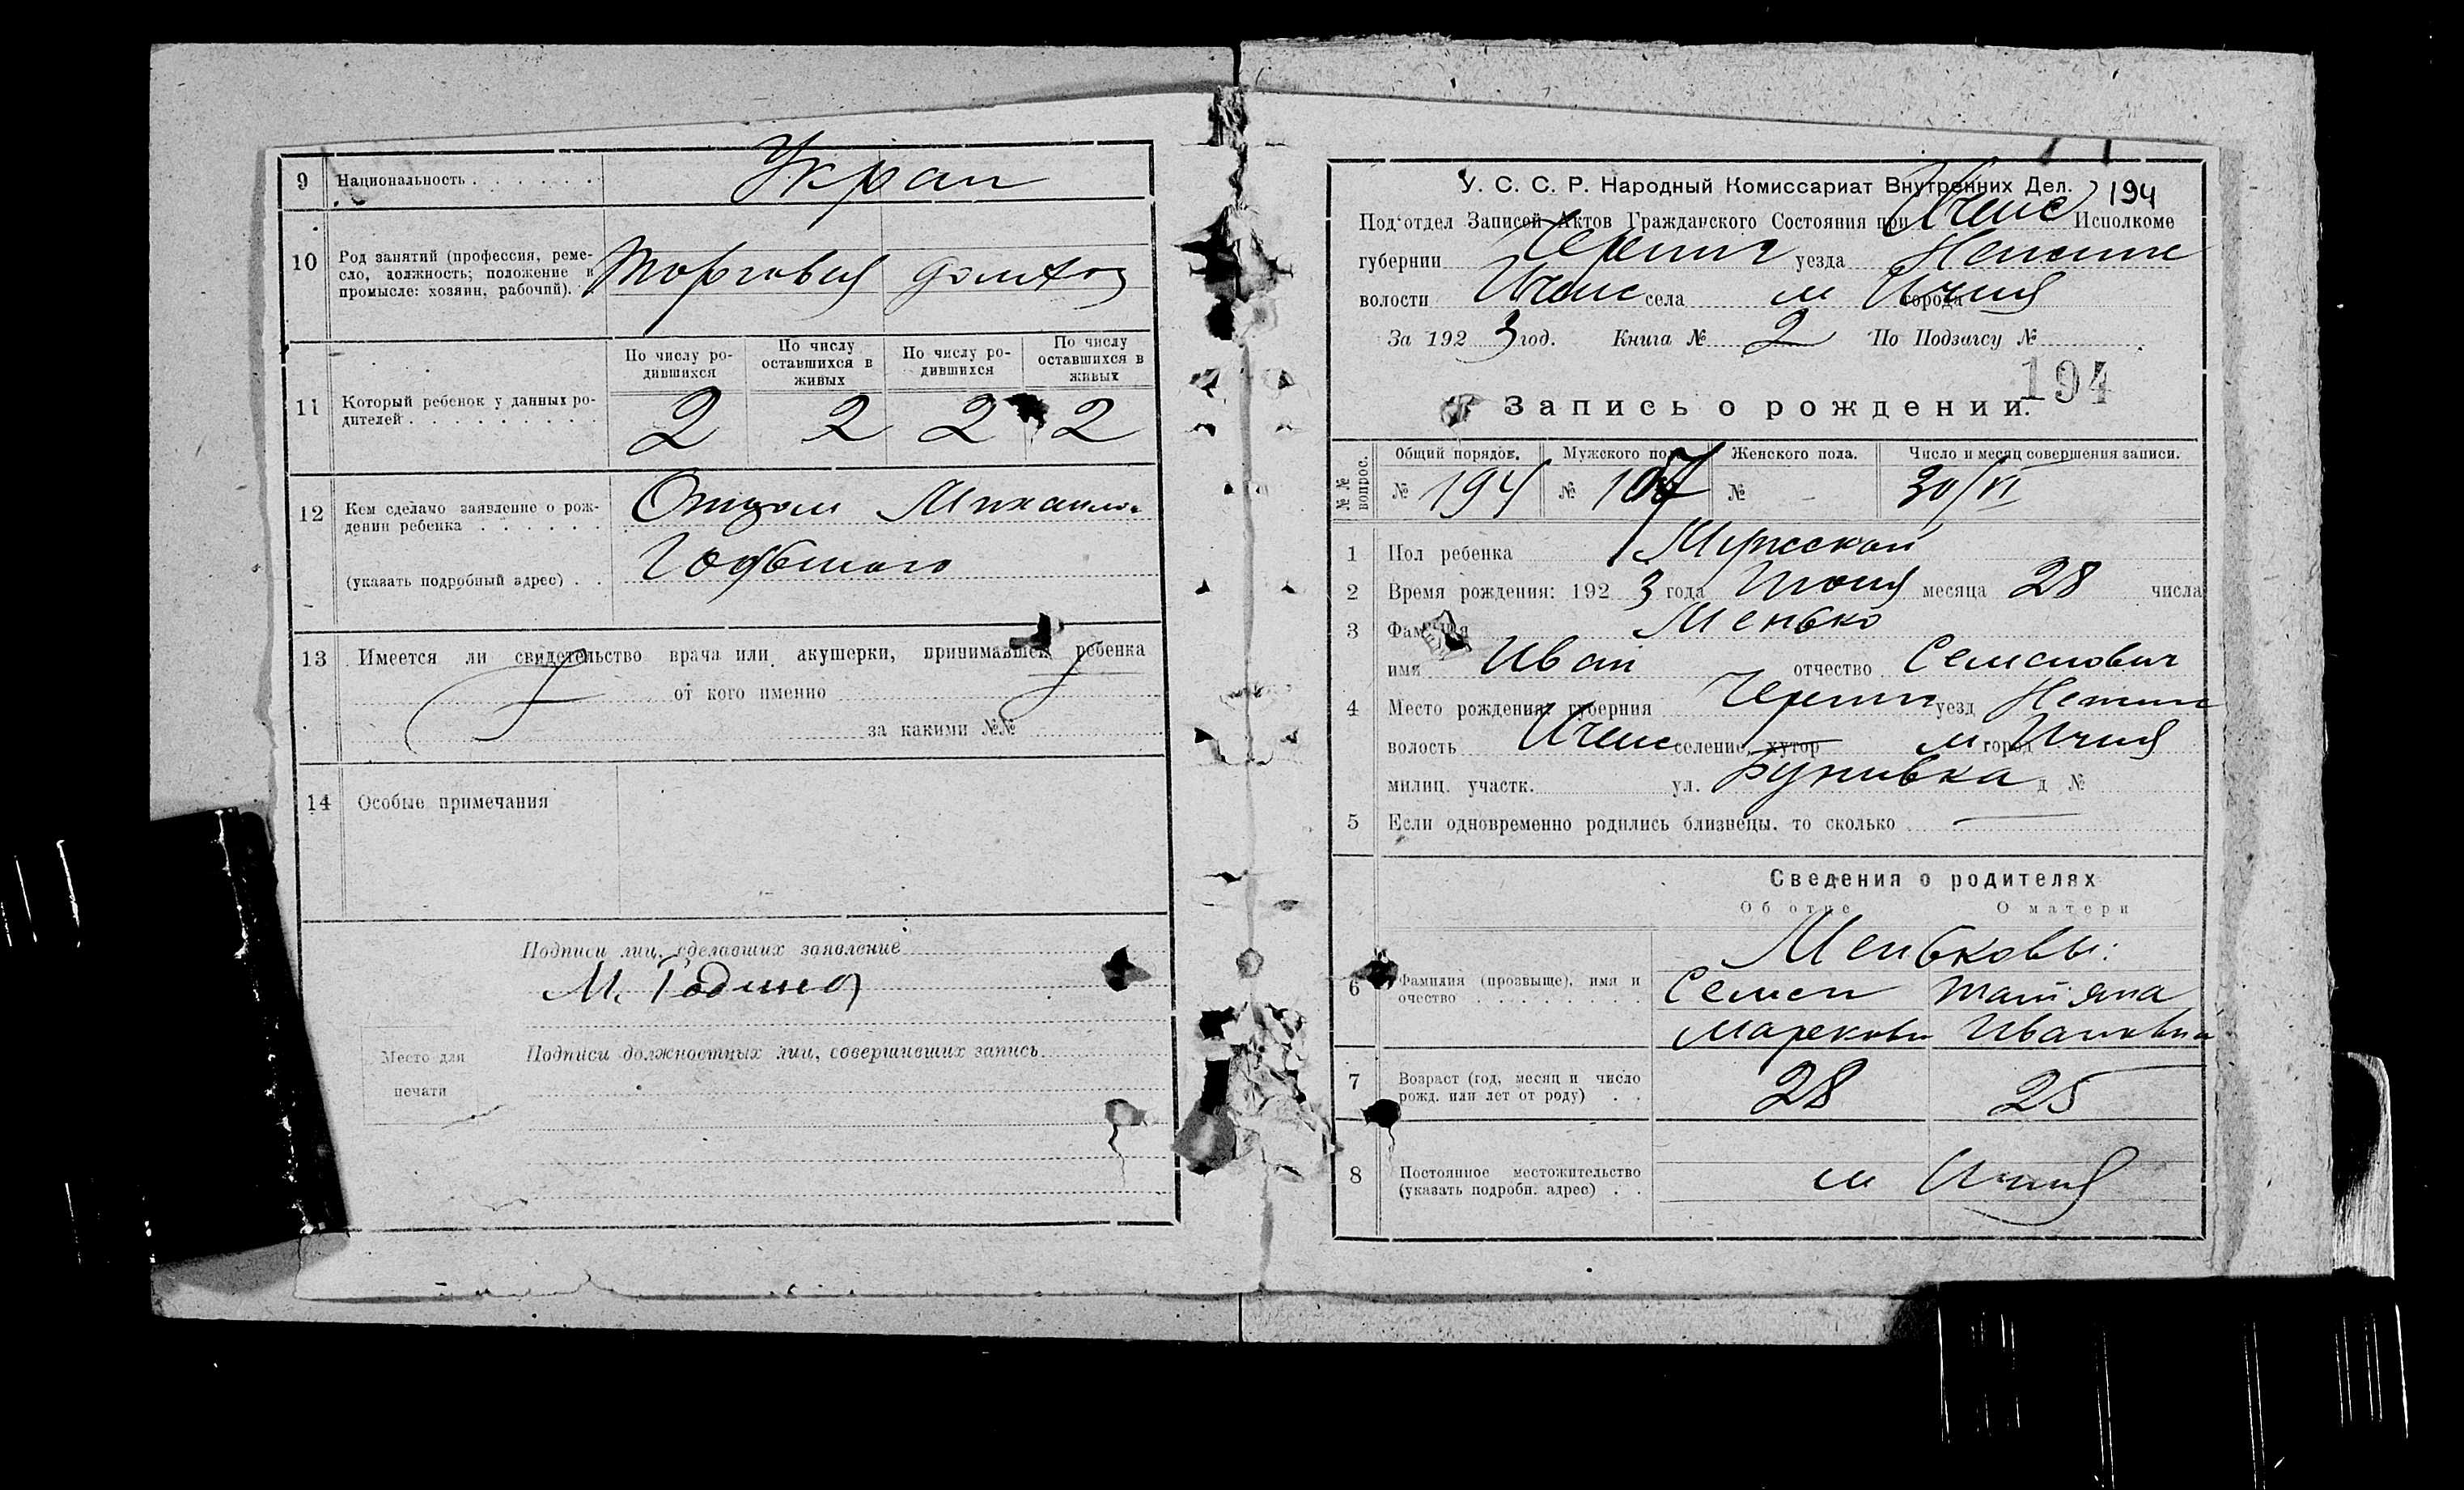 9 Национальность . . . . . . Укран
10 Род занятий (профессия, реме-
сло, должность; положение в
промысле: хозяин, рабочий). Торговля домхоз
11 Который ребенок у данных ро-
дителей . . . . . . . . .
По числу ро-
дившихся
По числу
оставшихся в
живых
По числу ро-
дившихся
По числу
оставшихся в
живых
2 2 2 2
12 Кем сделано заявление о рож-
дении ребенка . . . . . .
(указать подробный адрес) . .
13 Имеется ли свидетельство врача или акушерки, принимавшей ребенка
от кого именно
за какими №№
14 Особые примечания
Подписи лиц, сделавших заявление
М. Годына
Место для
печати
Подписи должностных лиц, совершивших запись
У. С. С. Р. Народный Комиссариат Внутренних Дел. 194
Под'отдел Записей Актов Гражданского Состояния при Ичнис Исполкоме
губернии Черниг уезда Нежинс
волости Ичнис села м города Ичня
За 1923 год. Книга № 2 По Подзагсу №
194
Запись о рождении.
№№ вопрос.
Общий порядок. Мужского пола Женского пола. Число и месяц совершения записи.
№ 194 № 107 № – 30/VI
1 Пол ребенка Мужской
2 Время рождения: 1923 года Июня месяца 28 числа
3 Фамилия Менько
имя Иван отчество Семенович
4 Место рождения: губерния Черниг уезд Нежинс
волость Ичнис селение, хутор м город Ичня
милиц. участк. ул. Бунивка д №
5 Если одновременно родились близнецы, то сколько —
Сведения о родителях
Об отце О матери
Меньковы:
6 Фамилия (прозвыще), имя и
очество . . . . . . . . .
Семен Татьяна
Маркови Ивановна
7 Возраст (год, месяц и число
рожд. или лет от роду) . .
28 25
8 Постоянное местожительство
(указать подробн. адрес) . .
м Ичня